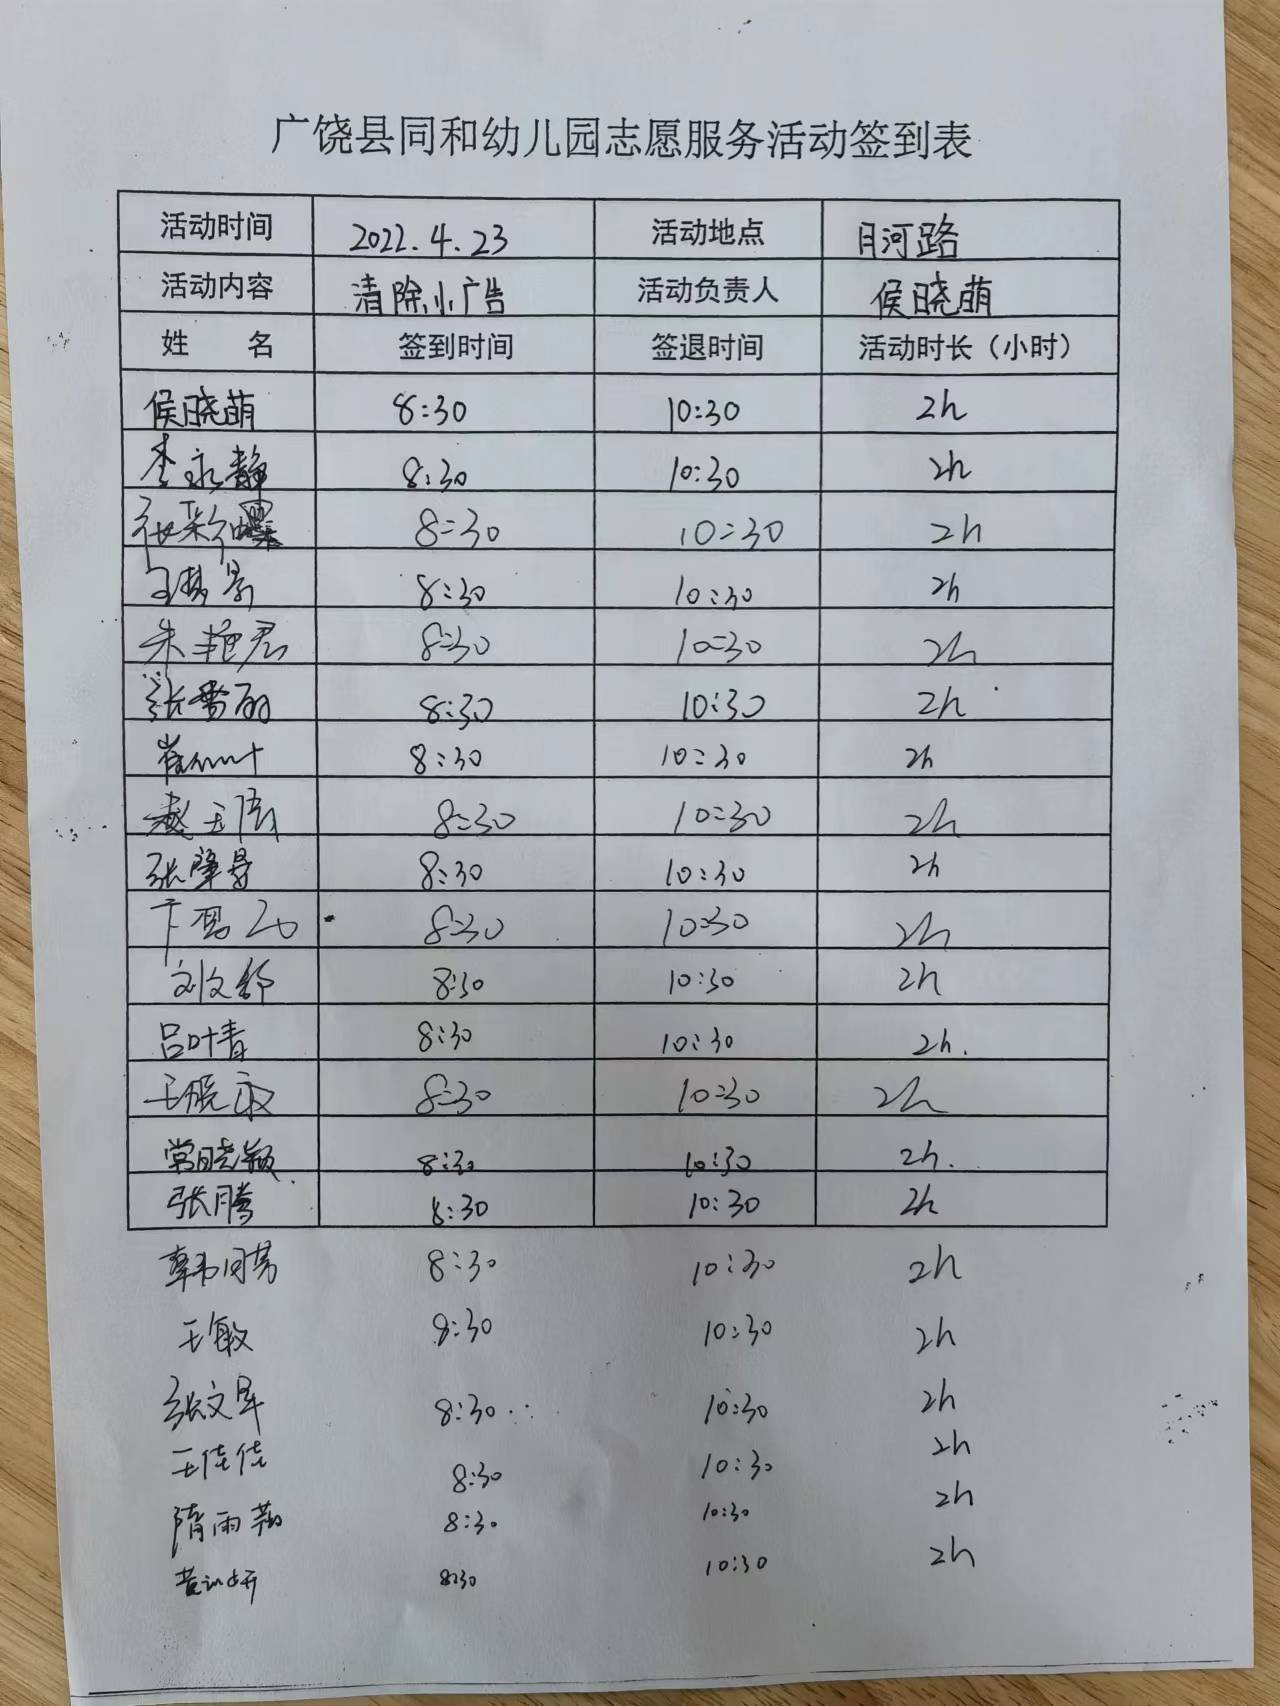 广饶县同和幼儿园志愿服务活动签到表
活动时间 2022.4.23 活动地点 月河路
活动内容 清除小广告 活动负责人 侯晓萌
姓 名 签到时间 签退时间 活动时长（小时）
侯晓萌 8:30 10:30 2h
李永静 8:30 10:30 2h
8:30 10:30 2h
8:30 10:30 2h
朱艳君 8:30 10:30 2h
张雪丽 8:30 10:30 2h
崔 8:30 10:30 2h
8:30 10:30 2h
张 8:30 10:30 2h
8:30 10:30 2h
刘文 8:30 10:30 2h
吕叶青 8:30 10:30 2h.
王晓 8:30 10:30 2h
常晓颖 8:30 10:30 2h.
张腾 8:30 10:30 2h
韩 8:30 10:30 2h
王敏 8:30 10:30 2h
张文 8:30 10:30 2h
王佳佳 8:30 10:30 2h
隋雨 8:30 10:30 2h
8:30 10:30 2h